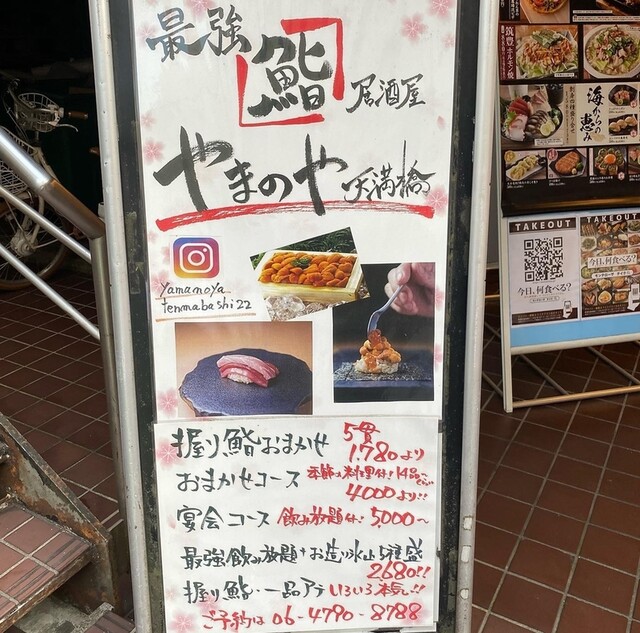 最強 鮨 居酒屋
やまのや 天満橋
yamanoya
tenmabashi22
握り鮨おまかせ 5貫 1,780より
おまかせコース 季節の料理付！14品
4000より!!
宴会コース 飲み放題付！5000〜
最強飲み放題＋お造り氷山5種盛
2680!!
握り鮨・一品アテ いろいろ本気!!
ご予約は 06-4790-8788
筑豊ホルモン焼
海からの恵み
TAKEOUT
今日、何食べる？
TAKEOUT
今日、何食べる？